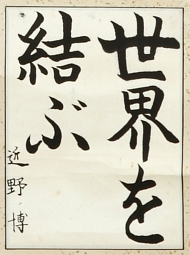 世界を
結ぶ
近野博